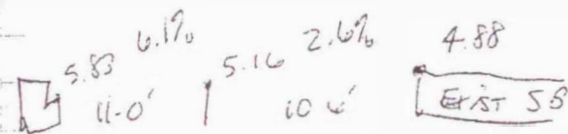 5.83 6.1% 5.16 2.6% 4.88
11-0' 10 6' EXIST SS